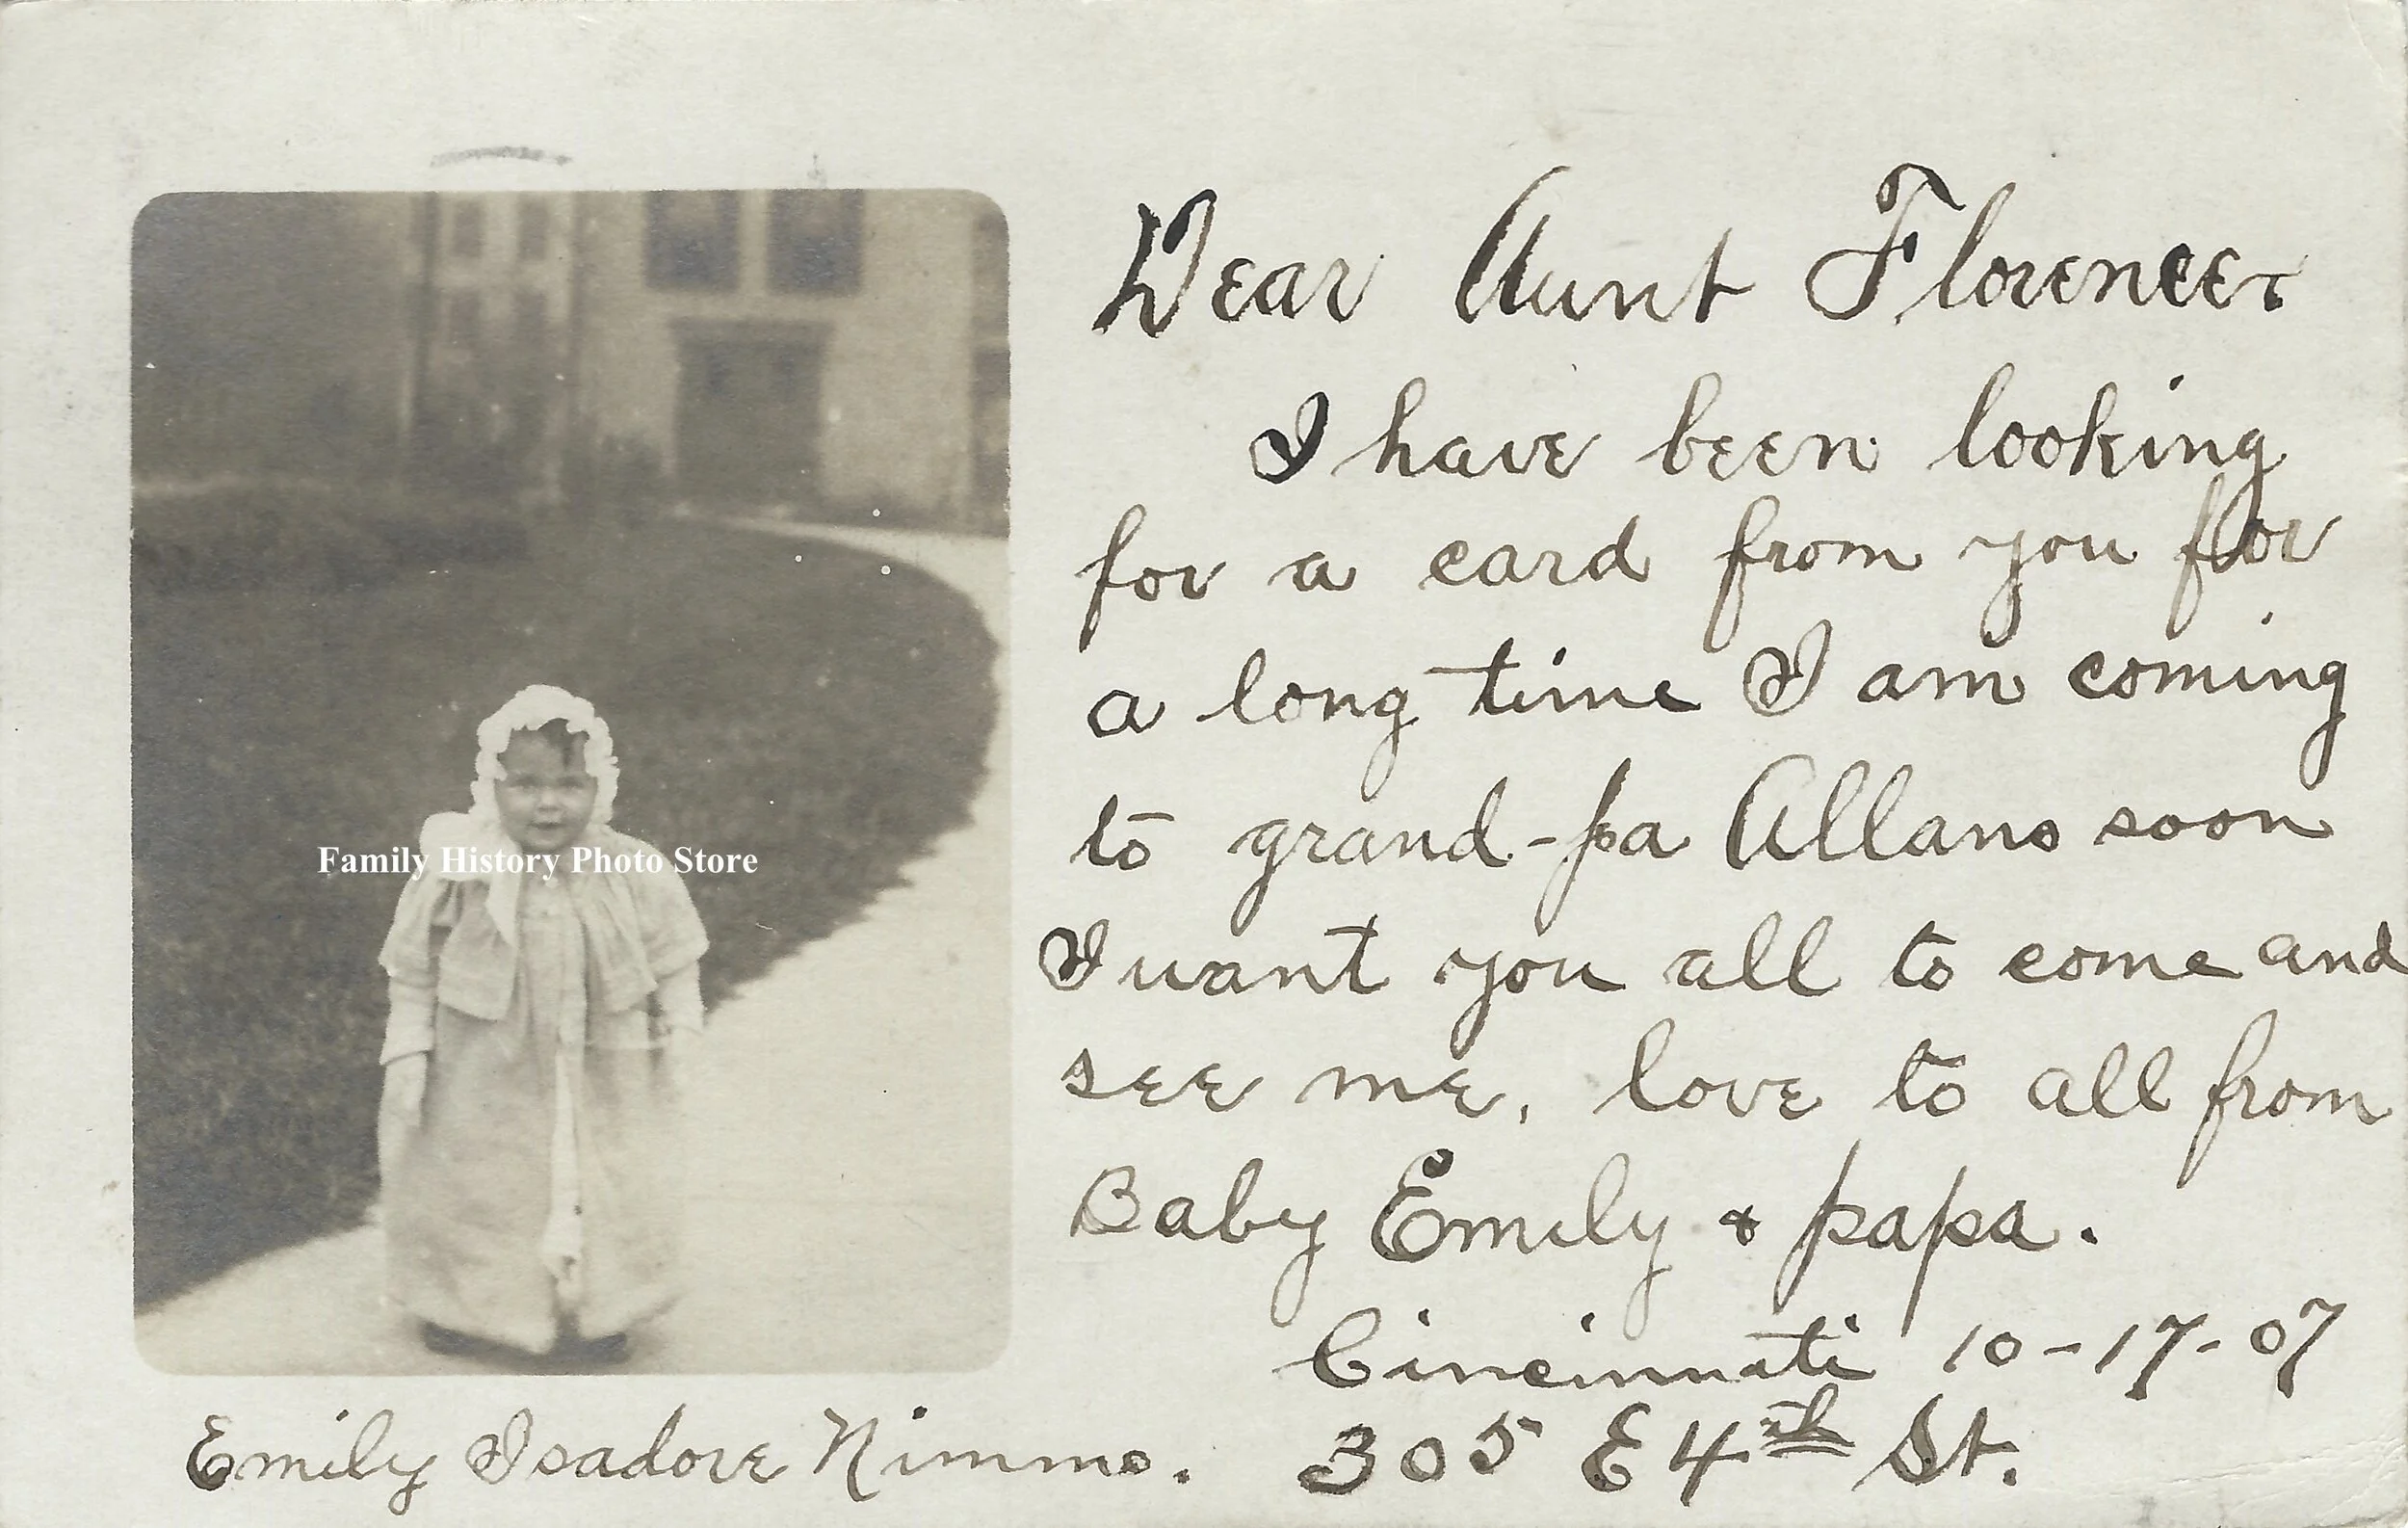 Dear Aunt Florence
I have been looking
for a card from you for
a long time I am coming
to grand-pa Allans soon
I want you all to come and
see me. love to all from
Baby Emily & papa.
Cincinnati 10-17-07
305 E 4th St.
Emily Isadore Nimmo.
Family History Photo Store